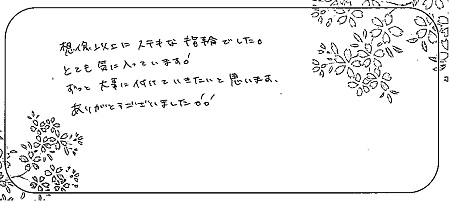 想像以上にステキな指輪でした。
とても気に入っています!
ずっと大事に付けていきたいと思います。
ありがとうございました!!